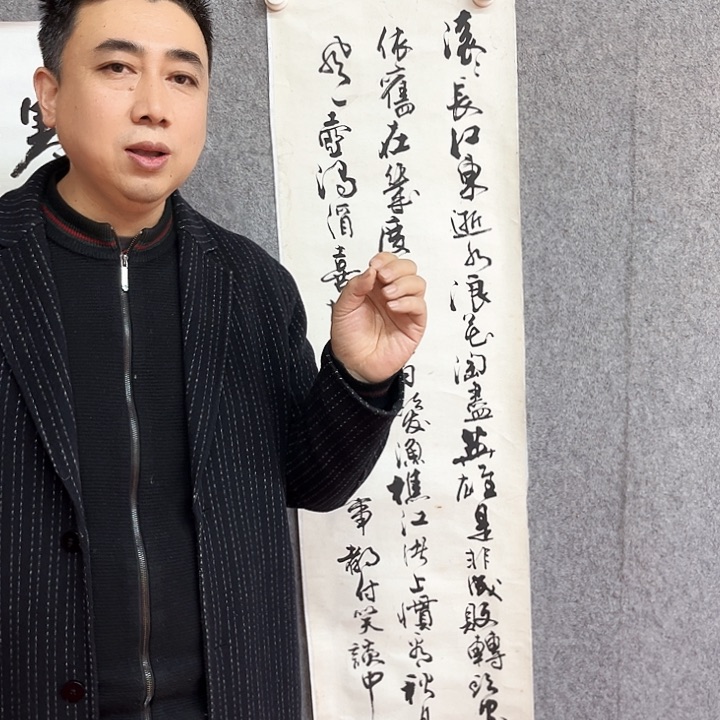 滾〻長江東逝水浪花淘盡英雄是非成敗轉頭空
依舊在幾度
髮漁樵江渚上慣看秋月
風一壺濁酒喜
事都付笑談中